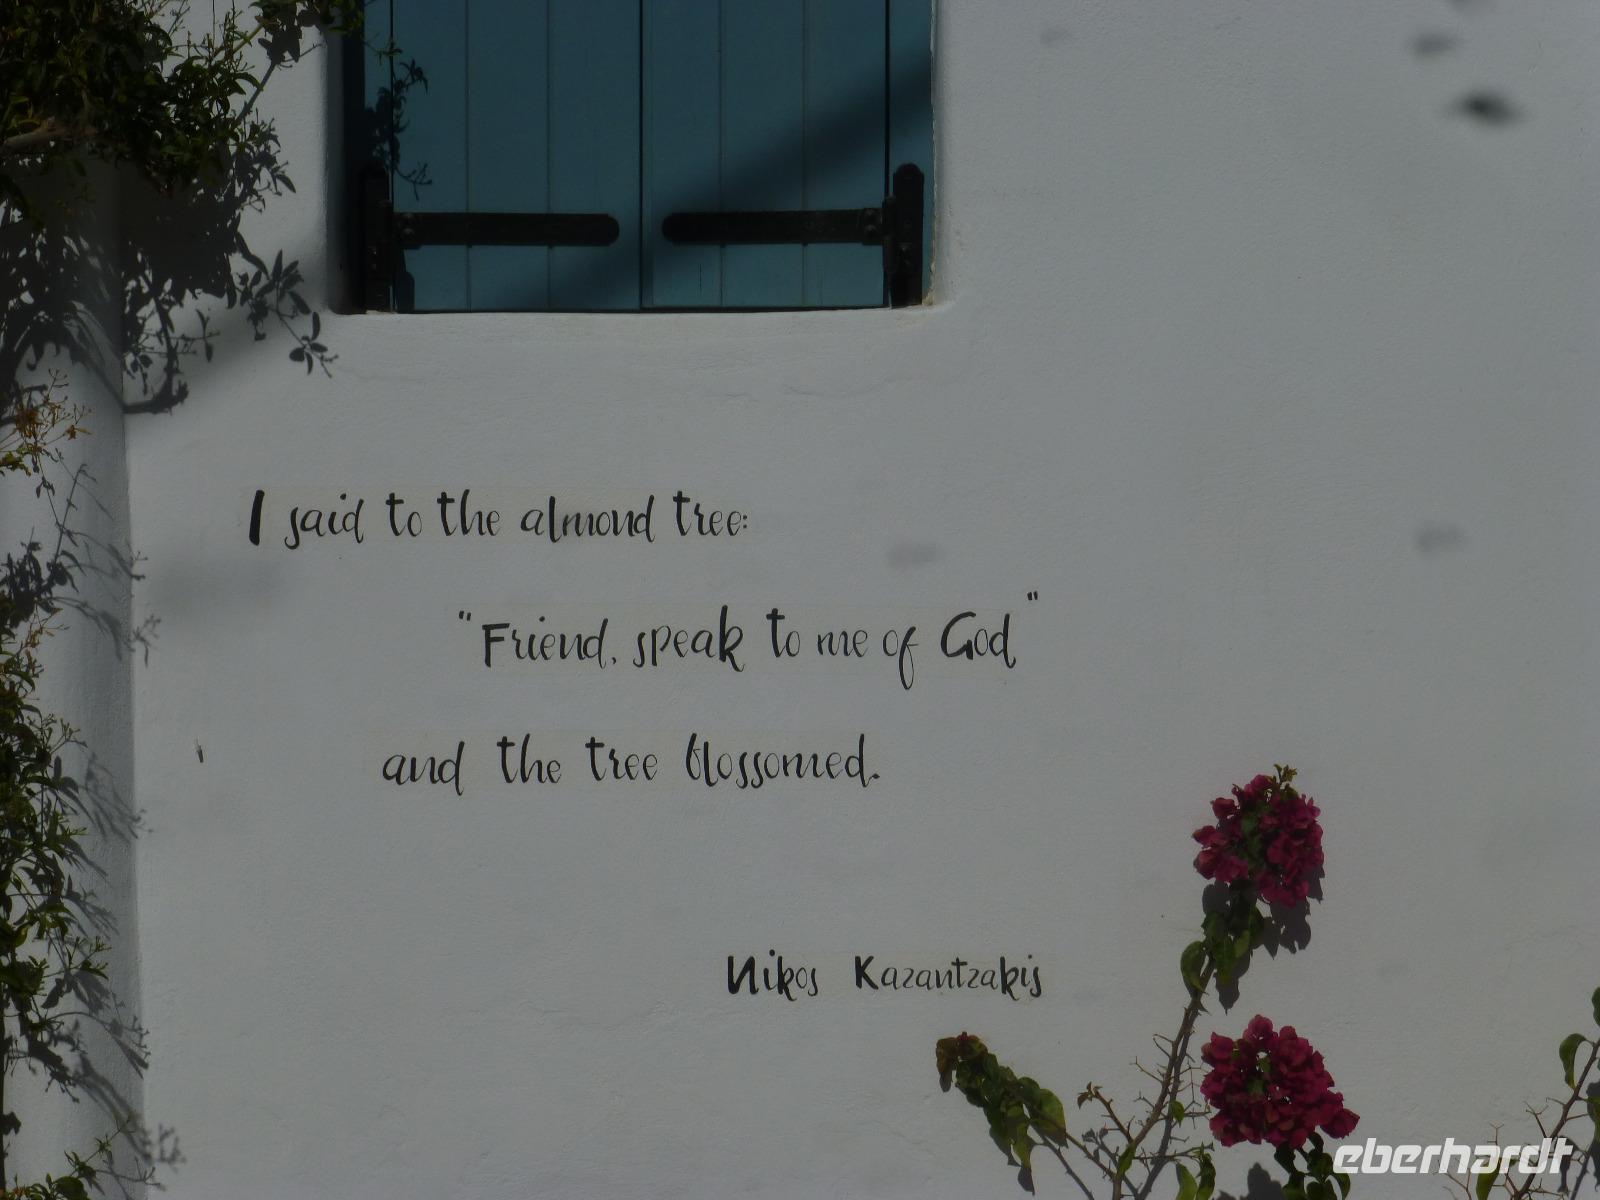 I said to the almond tree:
"Friend, speak to me of God"
and the tree blossomed.
Nikos Kazantzakis
eberhardt